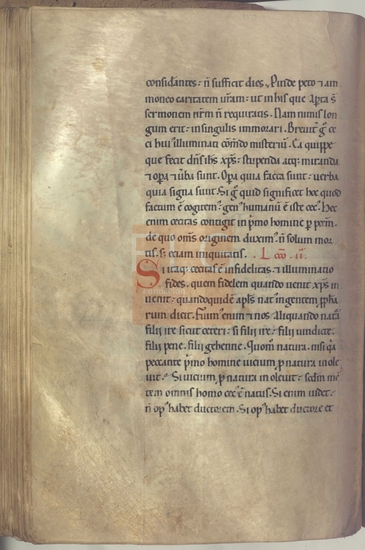 considantes: n̄ sufficit dies. Ꝓinde peto ⁊ am
moneo caritatem vr̄am: ut in his que aꝑta s̄
sermonem nr̄m n̄ requiratis. Nam nimis lon
gum erit: in singulis immorari. Breuit̾ g̊ ce
ci hui᷒ illuminati cōm̄do misteriū. Ea quippe
que fecit dn̄s ih̄s xp̄s: stupenda atq; miranda
⁊ oꝑa ⁊ ūba sunt. Oꝑa quia facta sunt: uerba
quia signa sunt. Si g̊ quid significet hoc quod
factum ē cogitem᷒: gen᷒ humanū ē iste cec᷒. Hec
enim cecitas contigit in p̓mo homine ꝑ pccm̄:
de quo om̄s originem duxim᷒. n̄ solum mor
tis. s; eciam iniquitatis. Lcō. ii.
Si itaq; cecitas ē infidelitas: ⁊ illuminatio
fides. quem fidelem quando uenit xp̄s in
uenit: quandoquidē apl̄s nat᷒ in gente ꝓpha
rum: dicit. Fuim᷒ enim ⁊ nos aliquando nat̾a
filii ire sicut ceteri: si filii ire: filii uindicte.
filii pene. filii gehenne. Quom̊ natura. nisi q̓a
peccante p̓mo homine uicium ꝓ natura inole
uit: Si uicium ꝓ natura inoleuit: sc̄dm m̄
tem omnis homo cec᷒ ē natus. Si enim uidet:
n̄ op᷒ habet ductorem. Si op᷒ habet ductore et